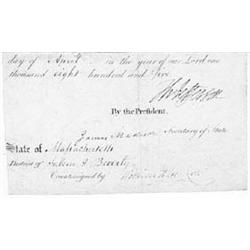 day of April in the year of our Lord one
thousand eight hundred and five
Th Jefferson
By the President.
James Madison Secretary of State
State of Massachusetts
District of Salem & Beverly
Countersigned by